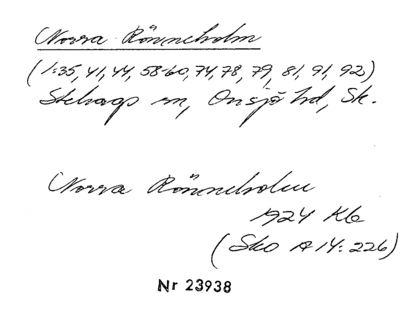 Norra Rönneholm
(1:35, 41, 44, 58-60, 74, 78, 79, 81, 91, 92)
Stehags sn, Onsjö hd, Sk.
Norra Rönneholm
1924 Kb
(Sko A 14: 226)
Nr 23938